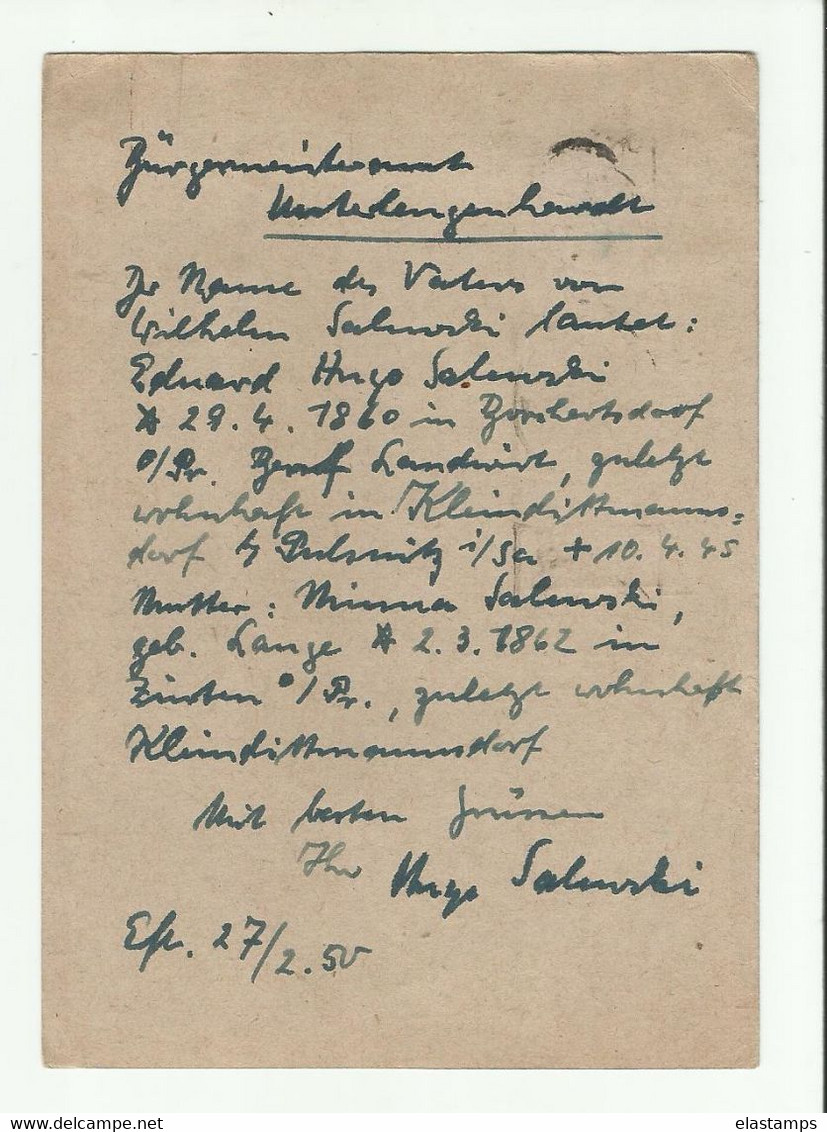 Bürgermeisteramt
Unterlengenhardt
Der Name des Vaters von
Wilhelm Salewski lautet:
Eduard Hugo Salewski
* 29.4.1860 in Borchertsdorf
O/Pr. Beruf Landwirt, zuletzt
wohnhaft in Kleindittmanns=
dorf b/ Pulsnitz i/Sa + 10.4.45
Mutter: Minna Salewski,
geb. Lange * 2.3.1862 in
O/Pr., zuletzt wohnhaft
Kleindittmannsdorf
Mit besten Grüssen
Ihr Hugo Salewski
Eft. 27/2.50
elastamps